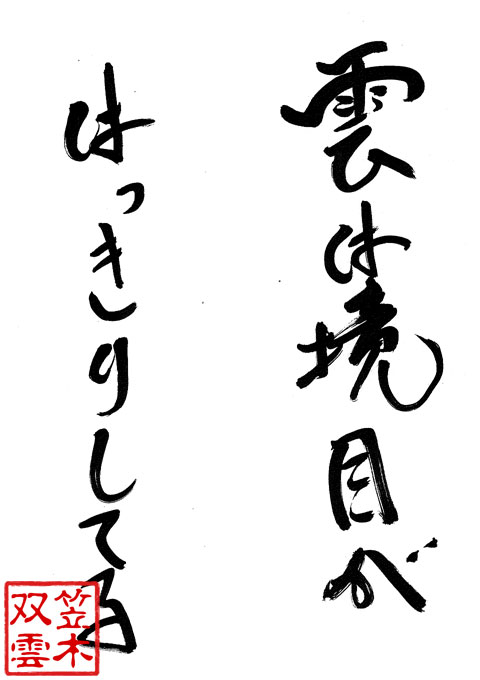 雲は境目が
はっきりしてる
笠木
双雲